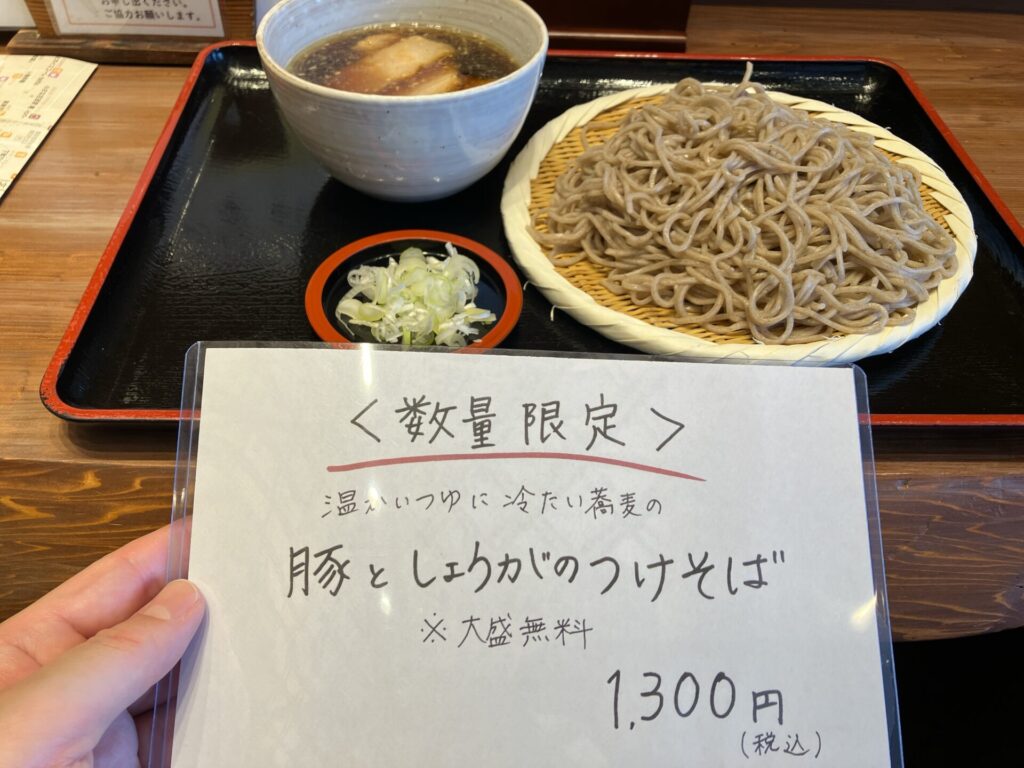 お申し出ください。
ご協力お願いします。
<数量限定>
温かいつゆに冷たい蕎麦の
豚としょうがのつけそば
※大盛無料
1,300円
(税込)